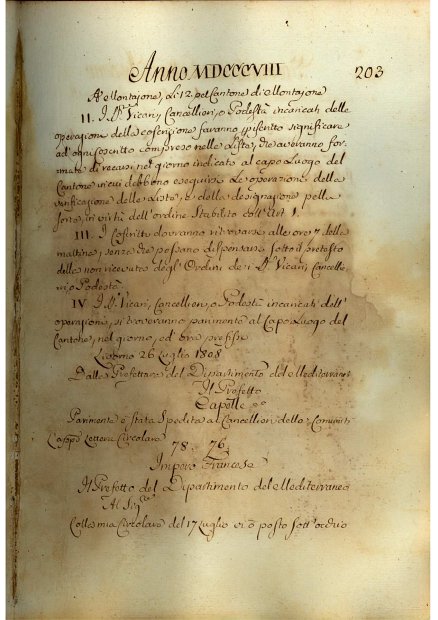 Anno MDCCCVIII 203
A' Montajone, Li 12. pel Cantone di Montajone
II. I Dⁱ Vicarj, Cancellieri, o Podestà incaricati delle
operazione della coscrizione faranno, p iscritto significare
ad ogni coscritto compreso nelle Liste, che averanno for-
mate di recarsi nel giorno indicato al capo Luogo del
Cantone in cui debbono eseguirsi Le operazioni della
verificazione delle Liste, e della designazione pella
sorte, in virtù dell'ordine Stabilito coll'Art. 1.
III. I Coscritti dovranno ritrovarsi alle ore 7 della
mattina, senza che possano dispensarsi sotto il pretesto
della non ricevuta degl'Ordini dei Dⁱ Vicarj, Cancelle-
ri, o Podestà.
IV I Dⁱ Vicarj, Cancellieri, o Podestà incaricati dell'
operazione, si troveranno parimente al Capo Luogo del
Cantone, nel giorno, ed ore prefisse
Livorno 26 Luglio 1808
Dalla Prefettura del Dipartimento del Mediterraneo
Il Prefetto
Capelle
Parimente è stata Spedita ai Cancellieri delle Comunità
L'appᵉ Lettera Circolare
78 - 76
Impero Francese
Il Prefetto del Dipartimento del Mediterraneo
Colla mia Circolare del 17 Luglio vi ò posto sott'occhio